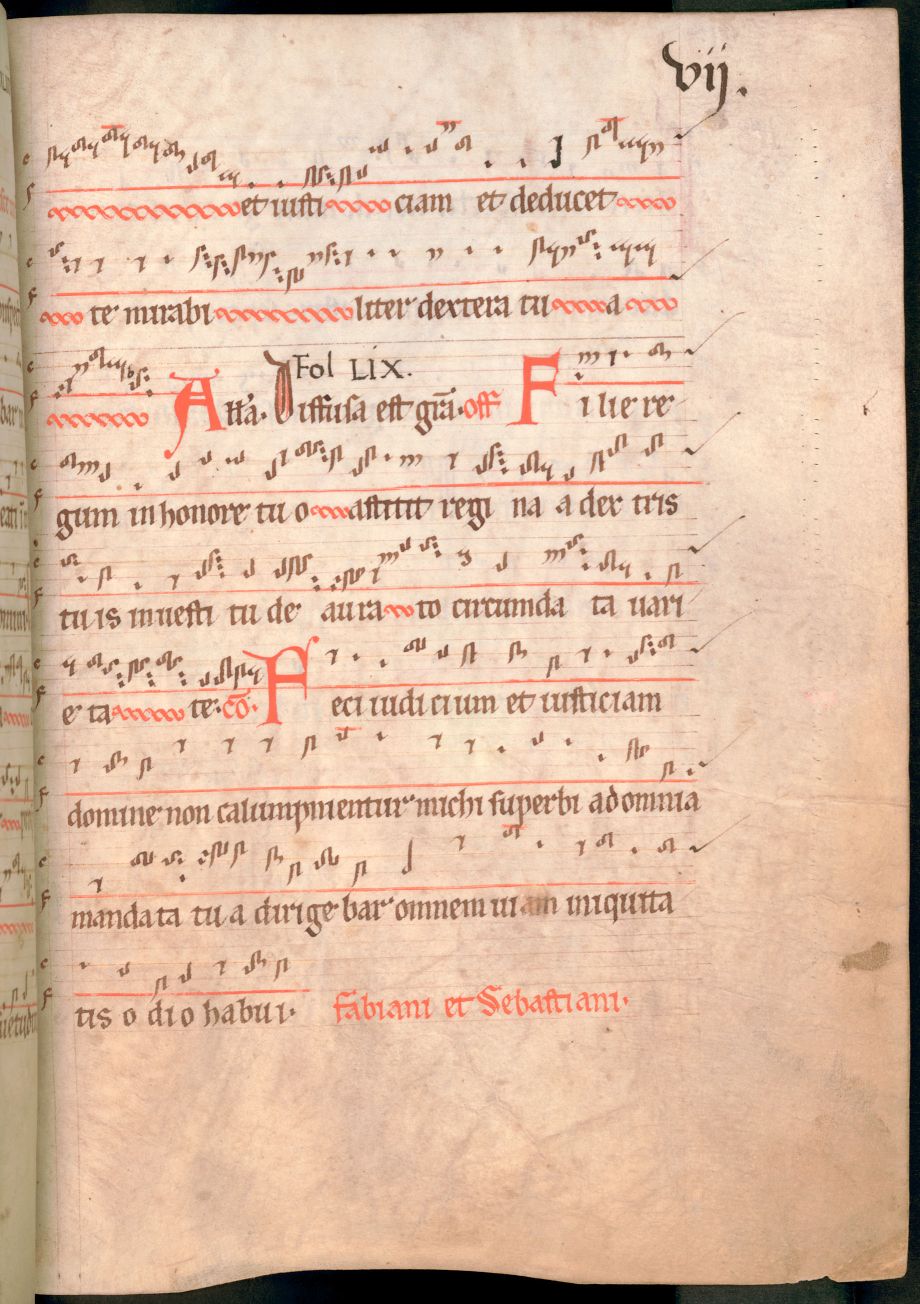 vij.
et iusti ciam et deducet
te mirabi liter dextera tu a
A llã. Diffusa est grã. off F i lie re
Fol LIX.
gum in honore tu o astitit regi na a dex tris
tu is in uesti tu de au ra to circumda ta uari
e ta te. cō. F eci iudi cium et iusticiam
domine non calumpnientur michi superbi ad omnia
mandata tu a dirige bar omnem uiam iniquita
tis o dio habui. Fabiani et Sebastiani.